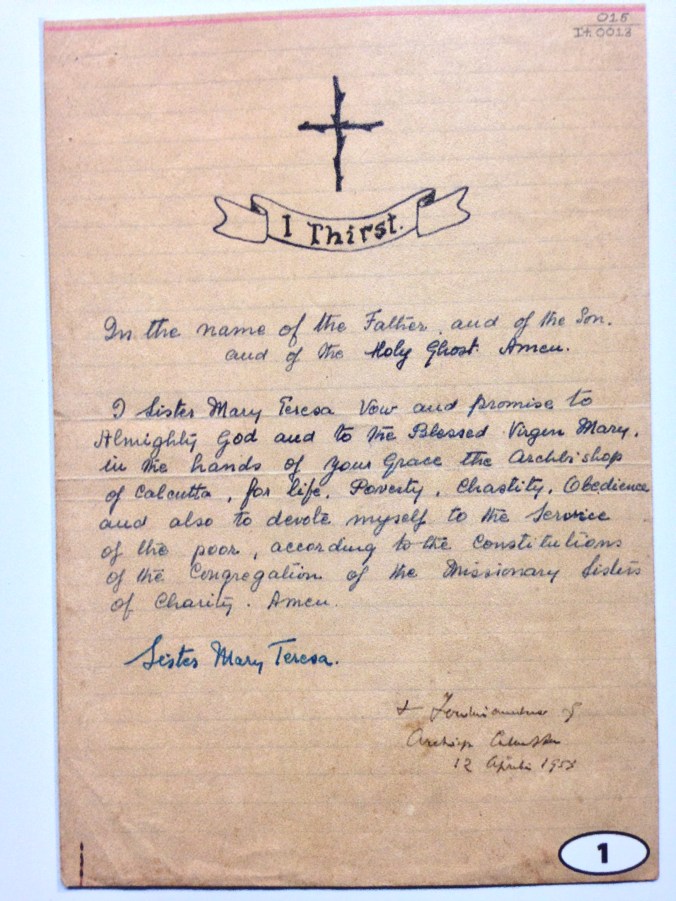 015
It.0013
I Thirst.
In the name of the Father, and of the Son.
and of the Holy Ghost. Amen.
I Sister Mary Teresa Vow and promise to
Almighty God and to the Blessed Virgin Mary,
in the hands of your Grace the Archbishop
of Calcutta, for life, Poverty, Chastity, Obedience
and also to devote myself to the Service
of the poor, according to the Constitutions
of the Congregation of the Missionary Sisters
of Charity. Amen.
Sister Mary Teresa.
+ Ferdinandus
Calcutta
12 Aprilis 1953
1